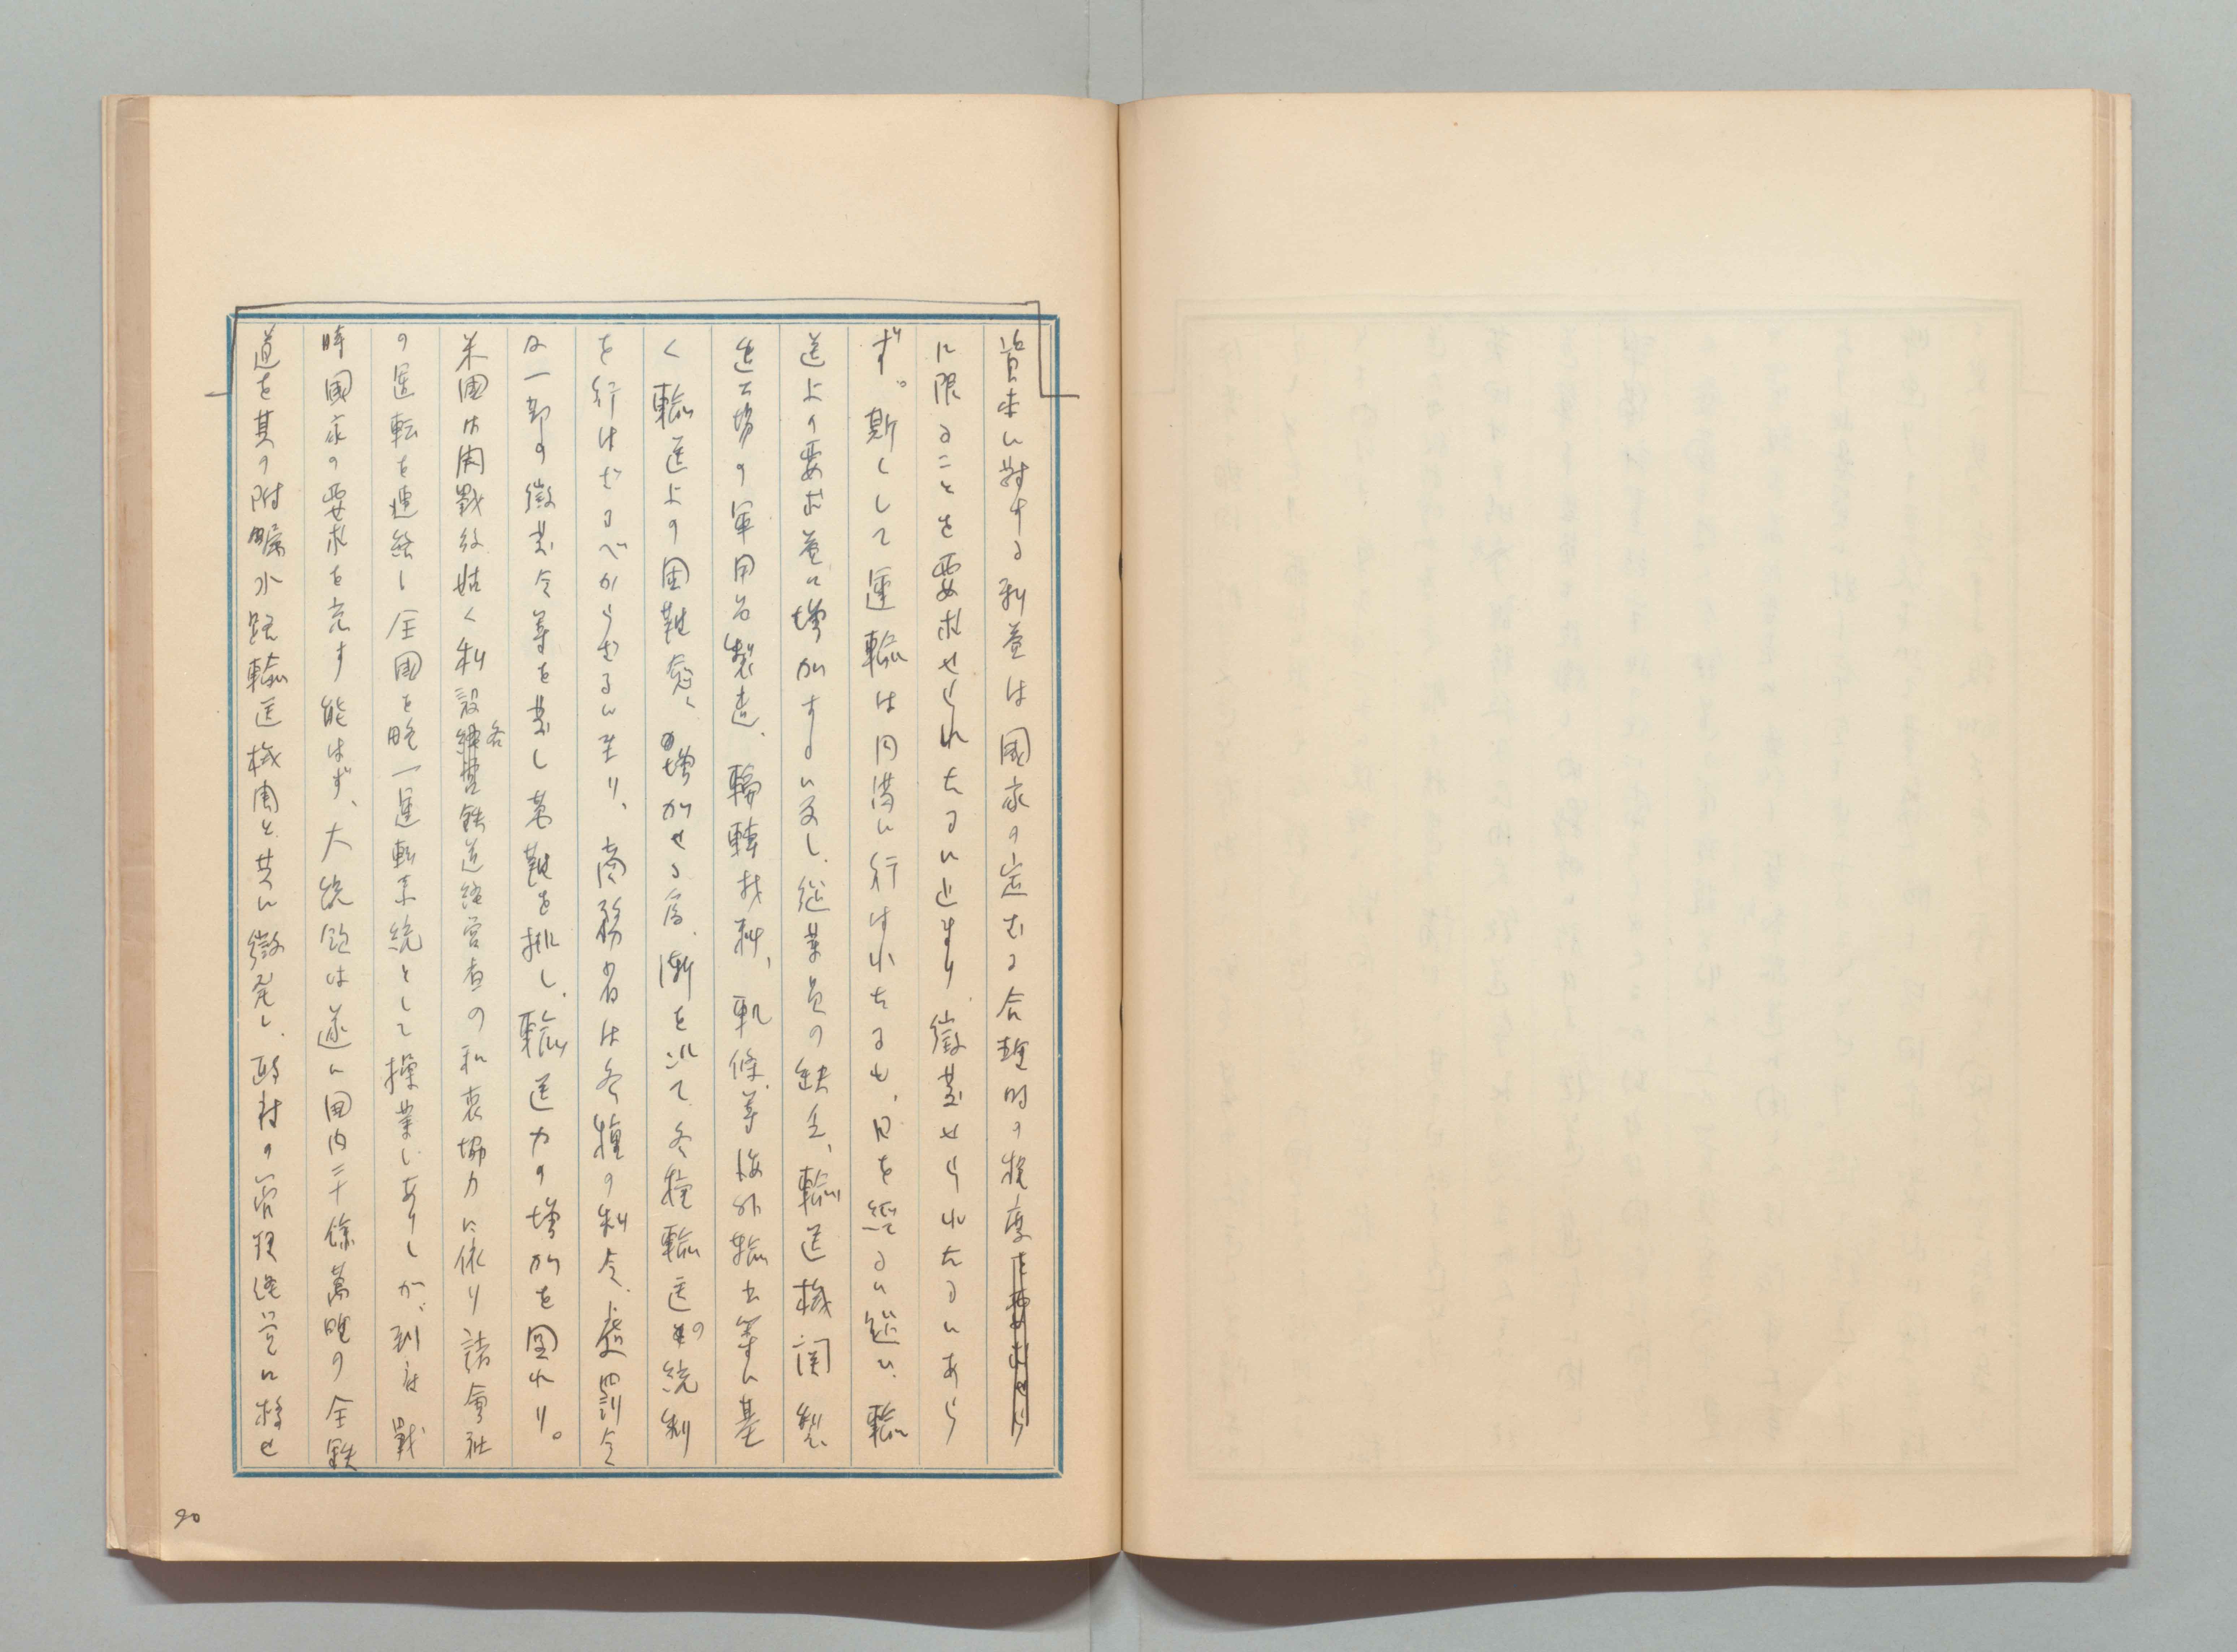 資本に対する利益は國家の定むる合理的の程度
に限ることを要求せられたるに止まり、徴発せられたるにあら
ず。斯くして運輸は円満に行はれたるも、日を經るに從ひ、輸
送上の要求益に増加するに反し、從業員の缺乏、輸送機関製
造工場の軍用品製造、輪轉材料、軌條等海外輸出等に基
く輸送上の困難愈々増加せる為、漸を追て各種輸送の統制
を行はざるべからざるに至り、商務省は各種の制令、處罰令
及一部の徴発令等を発し萬難を排し、輸送力の増加を圖れり。
米國は開戰後姑く私設各鉄道経営者の和衷協力に依り諸會社
の運転を連絡し全國を略一運転系統として操業しありしが、到底戰
時國家の要求を充す能はず、大統領は遂に国内二十餘萬哩の全鉄
道を其の附屬水路輸送機関と共に徴発し、政府の管理経営に移せ
90